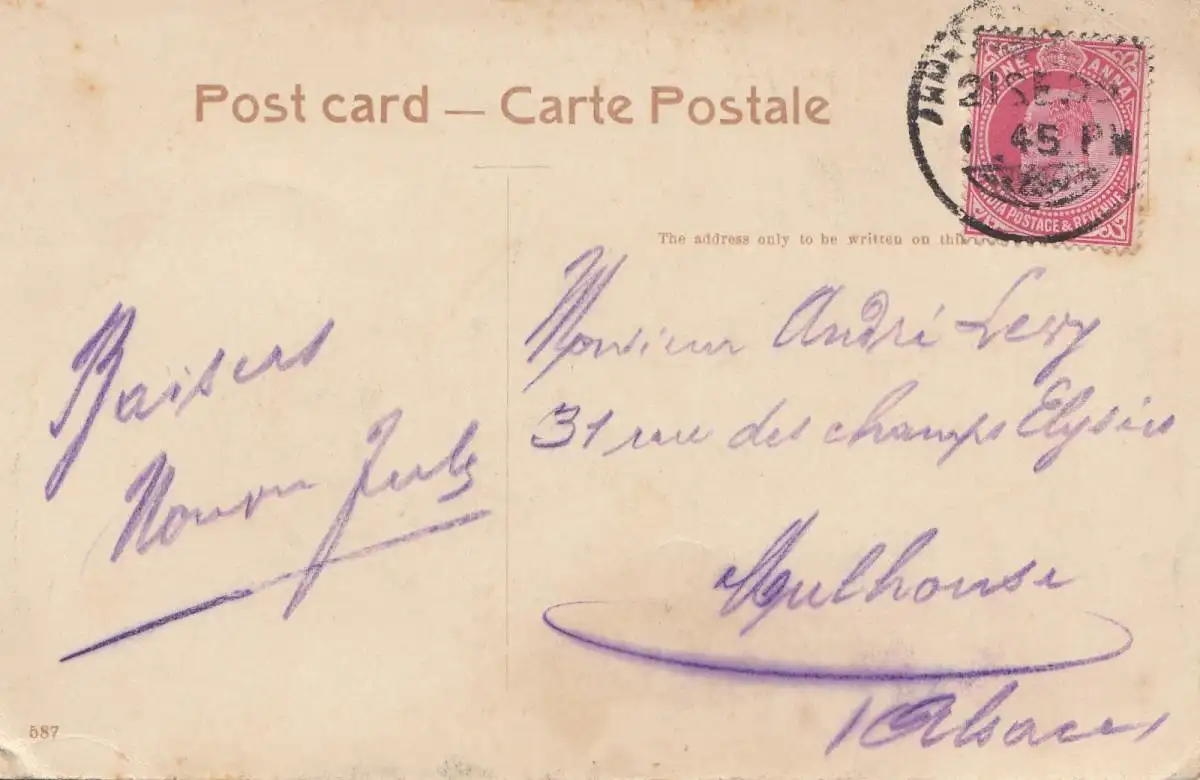 Post card — Carte Postale
ONE ANNA
45 PM
INDIA POSTAGE & REVENUE
The address only to be written on this
Baisers
Monsieur André Levy
31 rue des champs Elysées
Mulhouse
(Alsace)
587